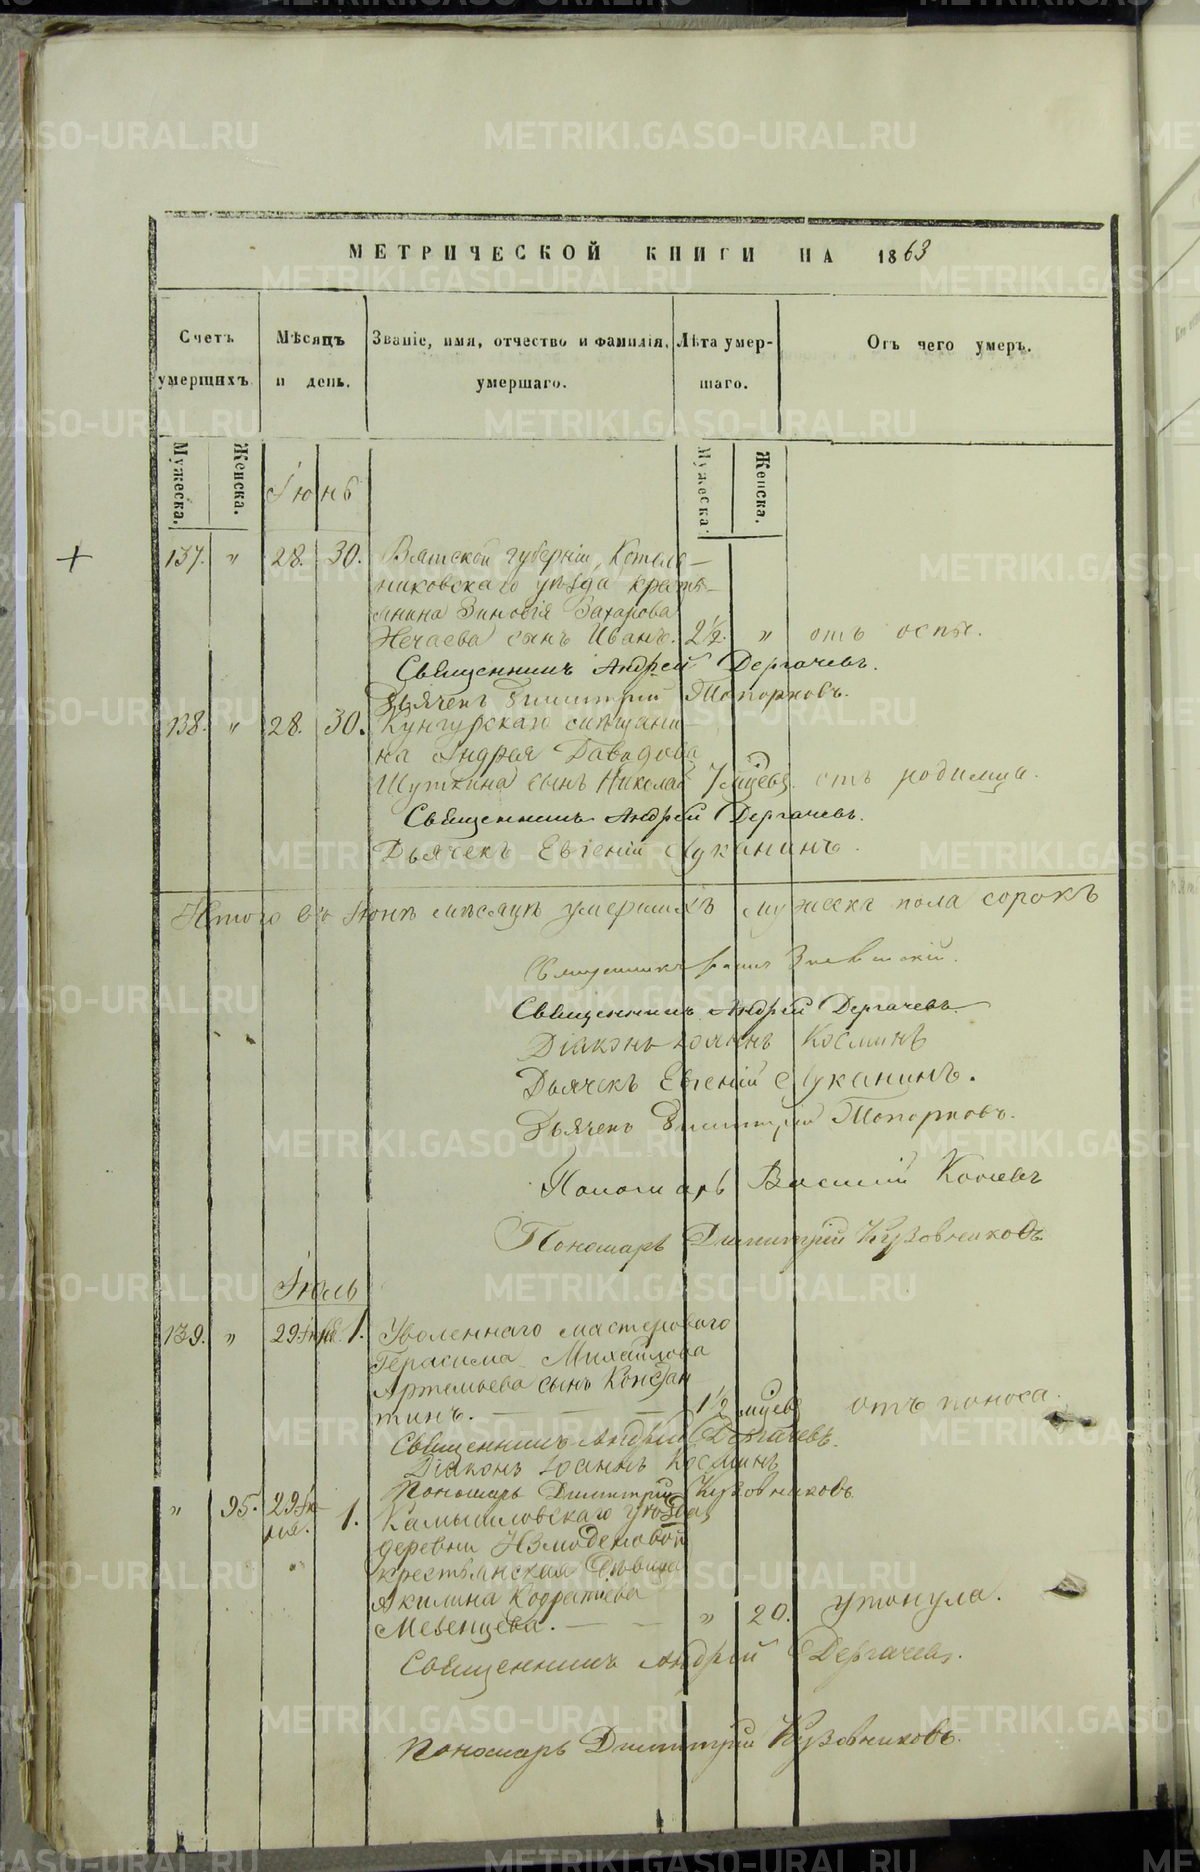 МЕТРИЧЕСКОЙ КНИГИ НА 1863
Счетъ умершихъ.
Мѣсяцъ и день.
Званіе, имя, отчество и фамилія умершаго.
Лѣта умершаго.
Отъ чего умеръ.
Мужеска. Женска.
Мужеска. Женска.
Іюнь
137. " 28. 30. Вятской губерніи, Котель-
никовскаго уѣзда кресть-
янина Зиновія Захарова
Нечаева сынъ Иванъ. 2½. " отъ оспы.
Священникъ Андрей Дергачевъ.
Дьячекъ Димитрій Топорковъ.
138. " 28. 30. Кунгурскаго мѣщани-
на Андрея Давыдова
Шуткина сынъ Николай 7 мцевъ. отъ родимца.
Священникъ Андрей Дергачевъ.
Дьячекъ Евгеній Луканинъ.
Итого въ Іюнѣ мѣсяцѣ умершихъ мужеска пола сорокъ
Священникъ
Священникъ Андрей Дергачевъ
Діаконъ Іоаннъ Косминъ
Дьячекъ Евгеній Луканинъ.
Дьячекъ Димитрій Топорковъ.
Пономарь Василій
Пономарь Димитрій Кузовниковъ
Іюль
139. " 29 Іюня. 1. Уволеннаго мастероваго
Герасима Михайлова
Артемьева сынъ Констан
тинъ. 1½ мцевъ отъ поноса.
Священникъ Андрей Дергачевъ.
Діаконъ Іоаннъ Косминъ
Пономарь Димитрій Кузовниковъ.
" 95. 29 Ію-
ня. 1. Камышловскаго уѣзда,
деревни
крестьянская дѣвица
Акилина Кодратіева
Мевенцева. " 20. утонула.
Священникъ Андрей Дергачевъ.
Пономарь Димитрій Кузовниковъ.
METRIKI.GASO-URAL.RU